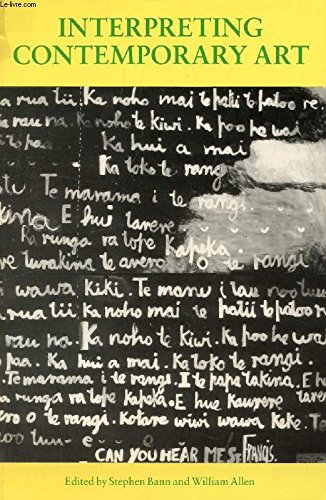 Le-livre.com
INTERPRETING
CONTEMPORARY ART
a rua tii. Ka noho mai te patii te patoo re
rau na. Ka noho te kiwi. Ka poo he wai
te paa. Ka hui a mai
Ka toko te rangi
Te marama i te rangi.
E hui tarere
Ra runga ra tope Kapeka
turakina te avero o te rangi
i wawa kiki. Te manu i tau
a rua tii Ka noho mai te patii te patoo
rau na. Ka noho te kiwi. Ka poo he wa
paa. Ka hui a mai. Ka toko te rangi.
Te marama i te rangi. I te papa takina. E hu
a runga ra tope kapeka. E hue Kaurere. tura
avero o te rangi. Kotare wiwi wawa keke. Te
too luu- e CAN YOU HEAR ME ST FRANCIS.
Edited by Stephen Bann and William Allen